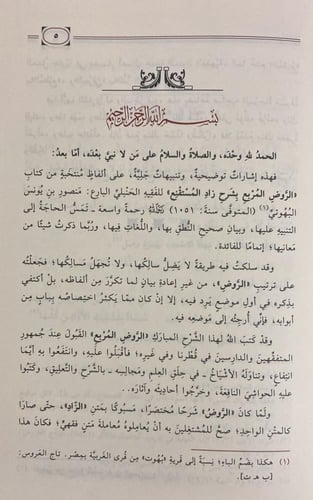 ٥
بسم الله الرحمن الرحيم
الحمدُ للهِ وحْدَه، والصلاةُ والسلامُ على مَن لا نبيَّ بعْدَه، أمّا بعدُ:
فهذه إشاراتٌ توضيحيةٌ، وتنبيهاتٌ جَليّةٌ، على ألفاظٍ مُنتخَبةٍ من كتابِ
«الرَّوْضُ المُرْبِع بِشَرحِ زادِ المُسْتَقْنِع» للفقيهِ الحَنْبليِّ البارع: مَنصورِ بن يُونسَ
البُهُوتيِّ(١) (المتوفَّى سنة: ١٠٥١) رحمةً واسعة - تَمَسُّ الحاجةُ إلى
التنبيهِ عليها، وبيانِ صحيحِ النُّطقِ بها، واللُّغاتِ فيها، ورُبَّما ذكرتُ شيئًا من
معانيها؛ إتمامًا للفائدة.
وقد سلكتُ فيه طريقةً لا يَضِلُّ سالِكُها، ولا تُجهَلُ مَسالِكُها؛ فجَعلتُه
على ترتيبِ «الرَّوضِ»، من غيرِ إعادةِ بيانٍ لما تكرَّرَ مِن ألفاظِه، بلْ أكتفي
بذِكرِه في أولِ موضعٍ يَرِد فيه، إلا إنْ كان ممّا يَكثرُ اختصاصُه ببابٍ مِن
أبوابِه، فإنّي أُرجئُه إلى مَوضعِه فيه.
وقد كتَبَ اللهُ لهذا الشرحِ المباركِ «الرَّوْضِ المُرْبِع» القَبولَ عندَ جُمهورِ
المتفقّهينَ والدارسينَ في قُطرِنا وفي غيرِه؛ فأقبَلُوا عليْه، وانتَفَعُوا بهِ أيَّما
انتِفاع، وتناوَلَهُ الأشياخُ - في حِلَقِ العِلمِ ومَجالسِه - بالشّرْحِ والتَّعليق، وكَتَبُوا
عليْهِ الحَواشيَ النافعَة، وخرَّجُوا أحاديثَه وآثارَه..
ولمّا كانَ «الرَّوضُ» شَرحًا مُختصَرًا، مَسبُوكًا بمَتنِ «الزَّادِ»، حتى صارَا
كالمَتنِ الواحِدِ؛ صحَّ للمُشتغِلينَ به أنْ يُعامِلُوهُ مُعاملةَ مَتنٍ فِقهيٍّ؛ فكانَ هذا
(١) هكذا بضم الباءِ؛ نِسبةً إلى قَريةِ «بُهُوت» مِن قُرى الغَربيّةِ بِمصرَ. تاج العروس:
[ب هـ ت].